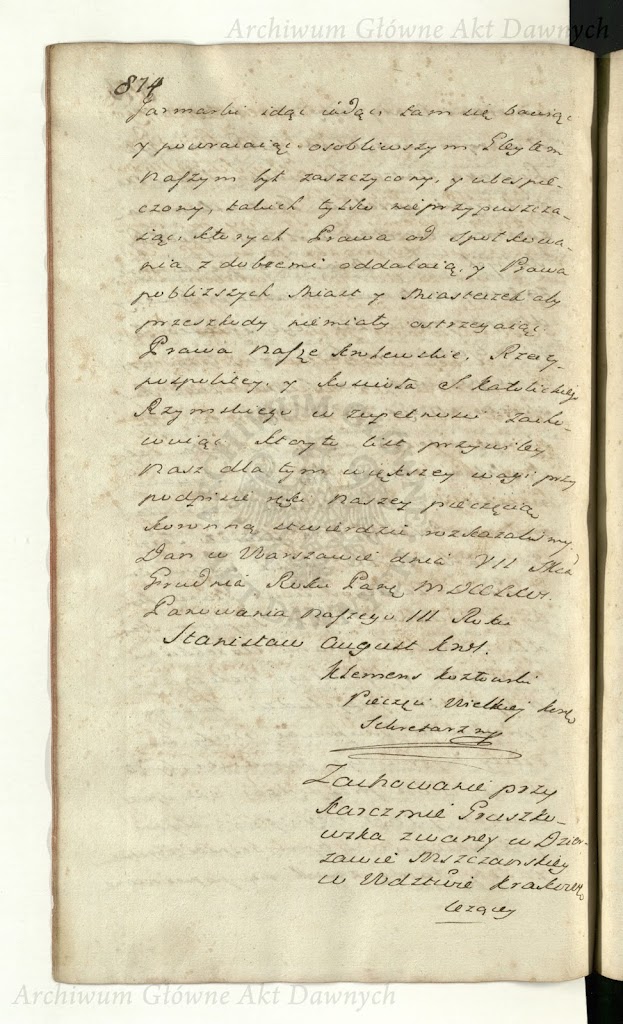 Archiwum Główne Akt Dawnych
874
Jarmarki idąc iadąc, tam się bawiąc
y powracaiąc osobliwszym Gleytem
Naszym był zaszczycony, y ubespie-
czony, takich tylko nieprzypuszcza-
iąc, których Prawa od społkowa-
nia z dobremi oddalaią, y Prawa
pobliższych Miast y Miasteczek aby
przeszkody niemiały ostrzegaiąc
Prawa Nasze Królewskie, Rzeczy-
pospolitey, y Kościoła S. Katolickiego
Rzymskiego w zupełności zacho-
wuiąc. Który to list przywiley
Nasz dla tym większey wagi przy
podpisie ręki Naszey pieczęcią
Koronną stwierdzić rozkazaliśmy.
Dan w Warszawie dnia VII Mca
Grudnia Roku Pańs.
Panowania Naszego III Roku
Stanisław August Król.
Klemens Kozłowski
Pieczęci Wielkiej Kor.
Sekretarz mp
Zachowanie przy
Karczmie Gruszko-
wska zwaney w Dzier-
zawie Mszczanskiey
w Wdztwie Krakow.
lezącey
Archiwum Główne Akt Dawnych